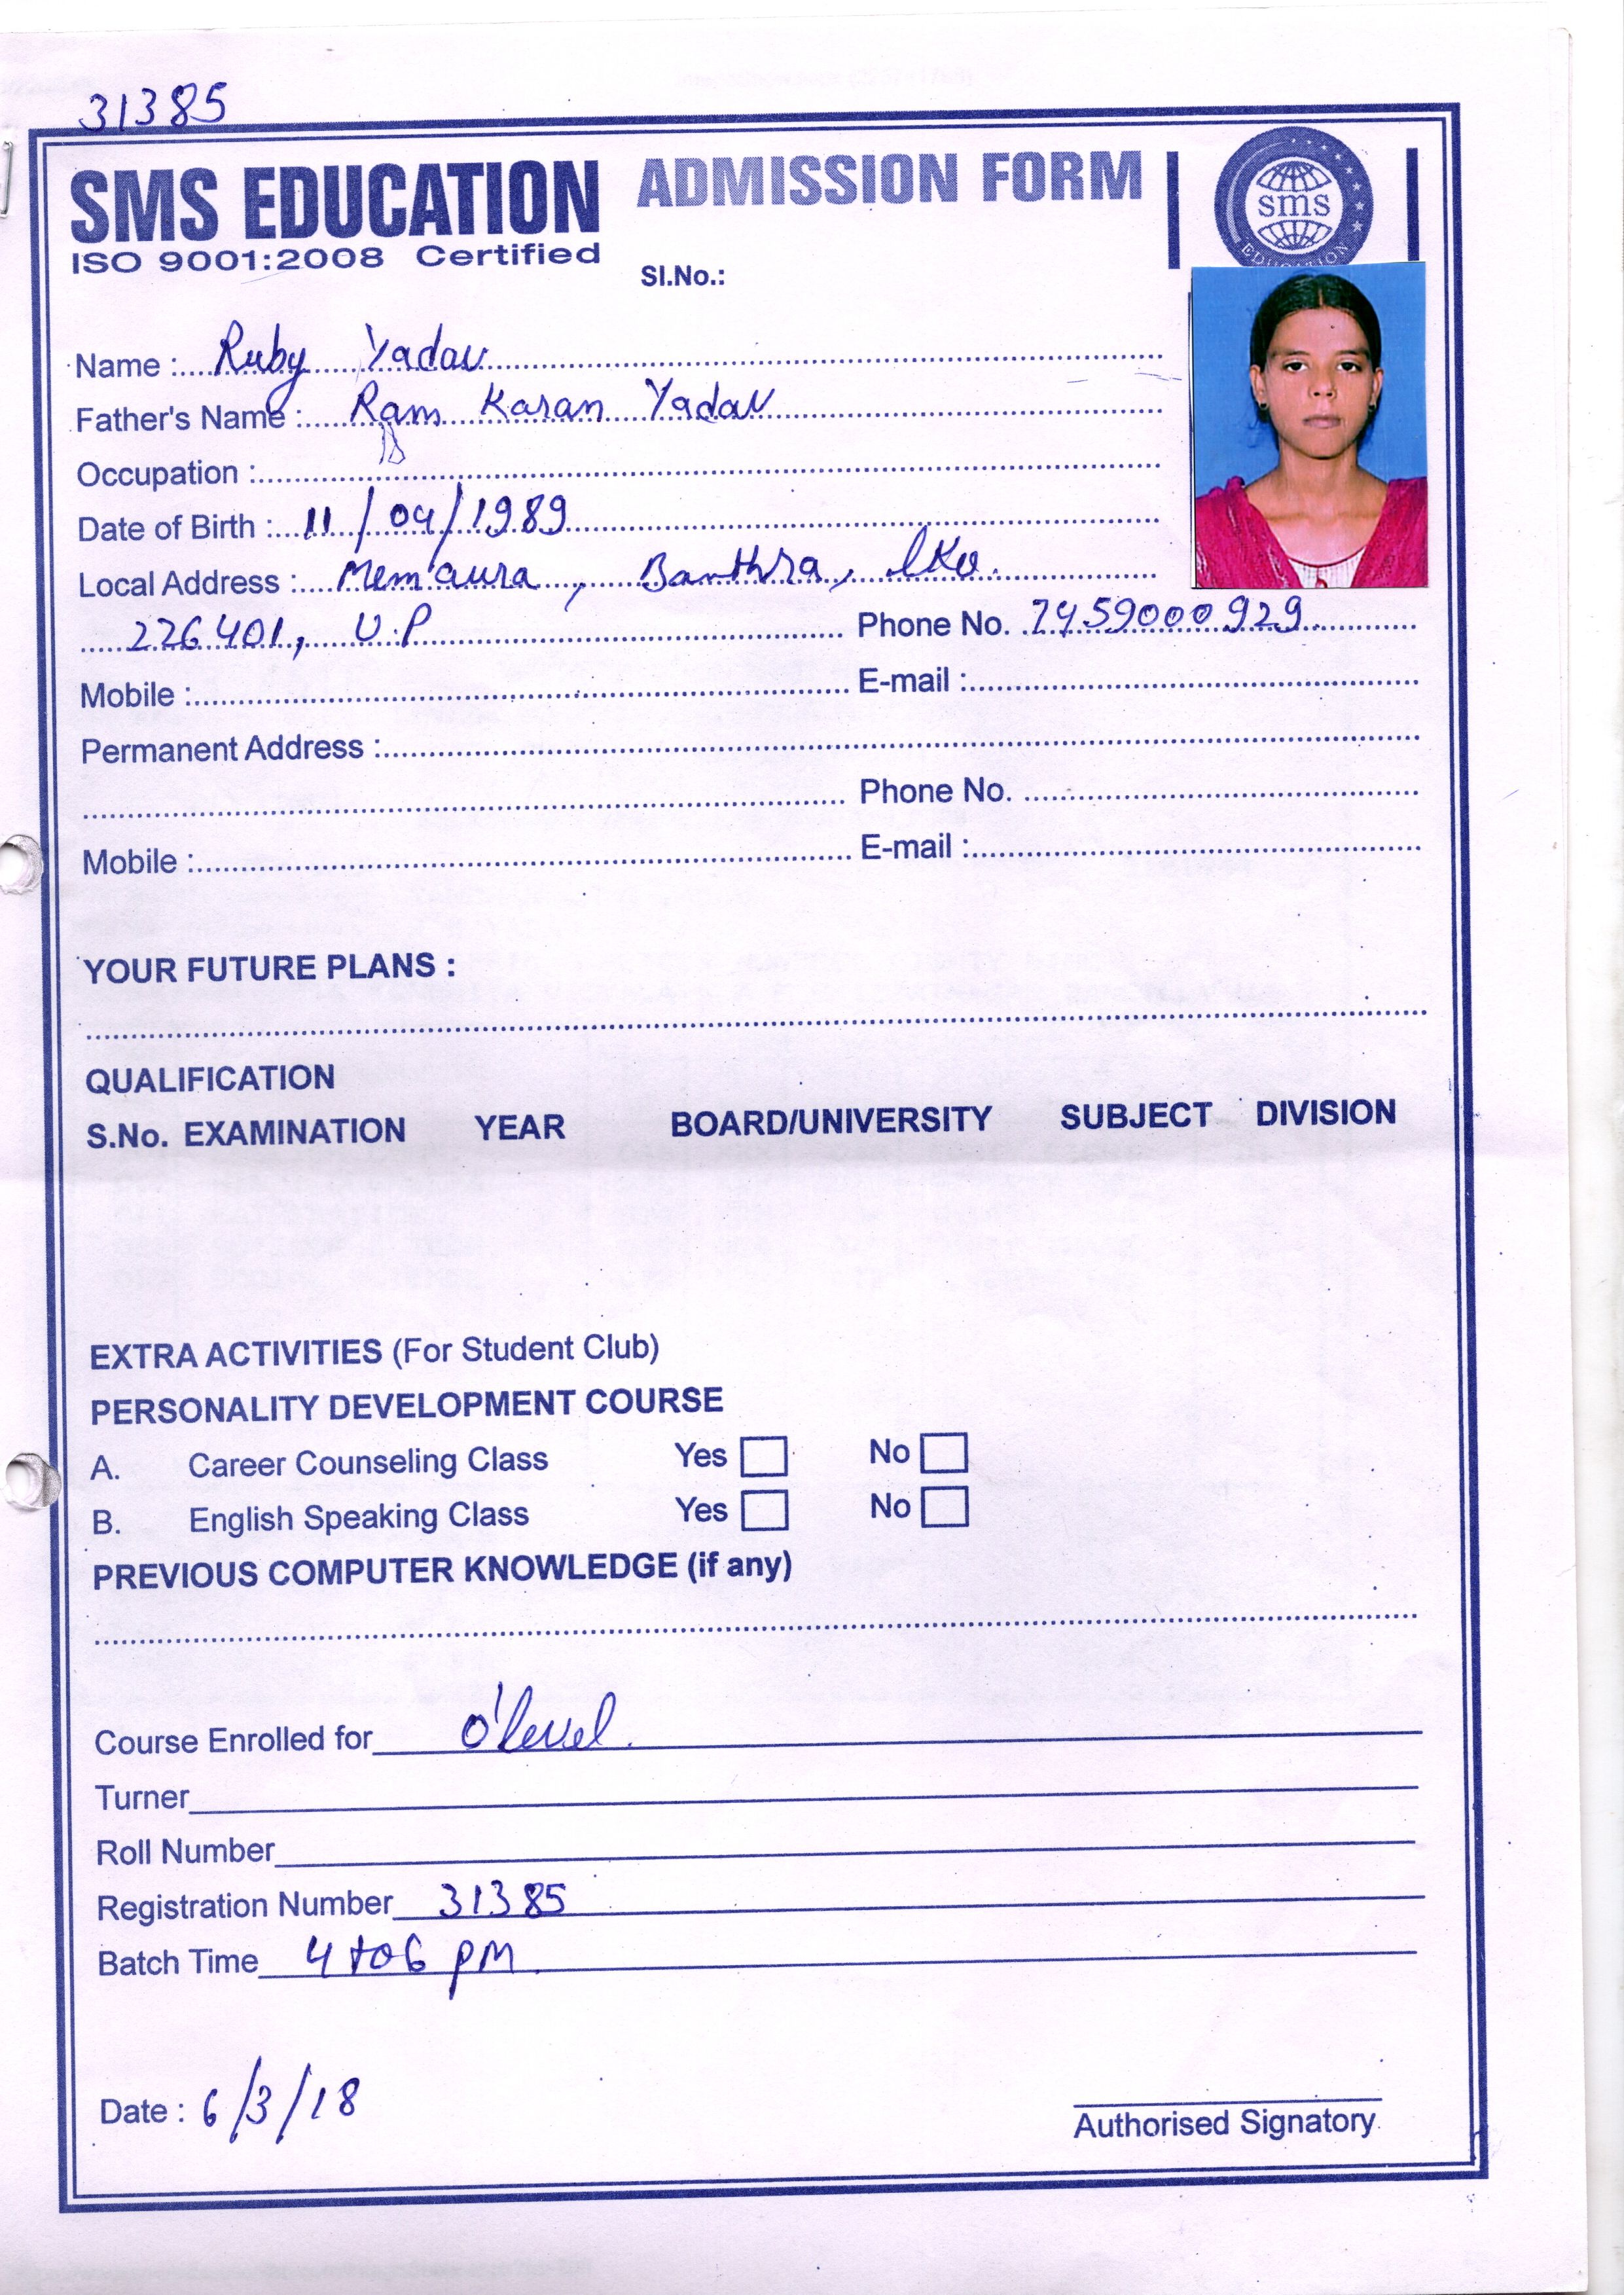 31385
SMS EDUCATION ADMISSION FORM
ISO 9001:2008 Certified
Sl.No.:
sms
EDUCATION
Name : Ruby Yadav
Father's Name : Ram Karan Yadav
Occupation :
Date of Birth : 11/04/1989
Local Address : Memaura, Banthra, lko.
226401, U.P Phone No. 7459000929
Mobile : E-mail :
Permanent Address :
Phone No.
Mobile : E-mail :
YOUR FUTURE PLANS :
QUALIFICATION
S.No. EXAMINATION YEAR BOARD/UNIVERSITY SUBJECT DIVISION
EXTRA ACTIVITIES (For Student Club)
PERSONALITY DEVELOPMENT COURSE
A. Career Counseling Class Yes No
B. English Speaking Class Yes No
PREVIOUS COMPUTER KNOWLEDGE (if any)
Course Enrolled for O'level.
Turner
Roll Number
Registration Number 31385
Batch Time 4 to 6 PM.
Date : 6/3/18
Authorised Signatory